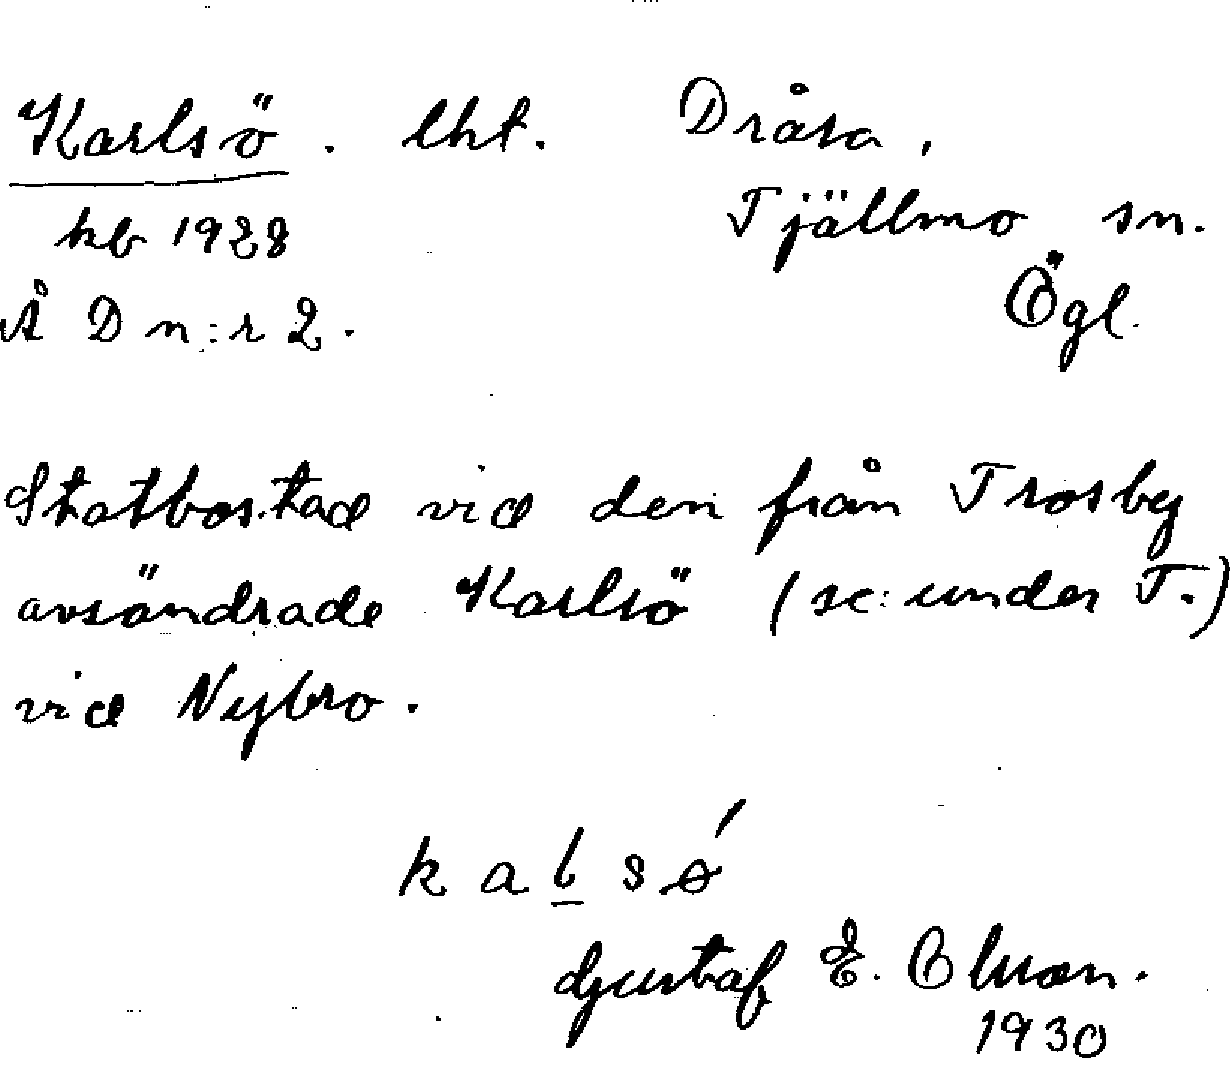 Karlsö. lht. Dråsa,
kb 1928 Tjällmo sn.
Å D n:r 2. Ögl.
Statbostad vid den från Trosby
avsöndrade Karlsö (se: under T.)
vid Nybro.
kalsǿ
Gustaf E. Olsson.
1930